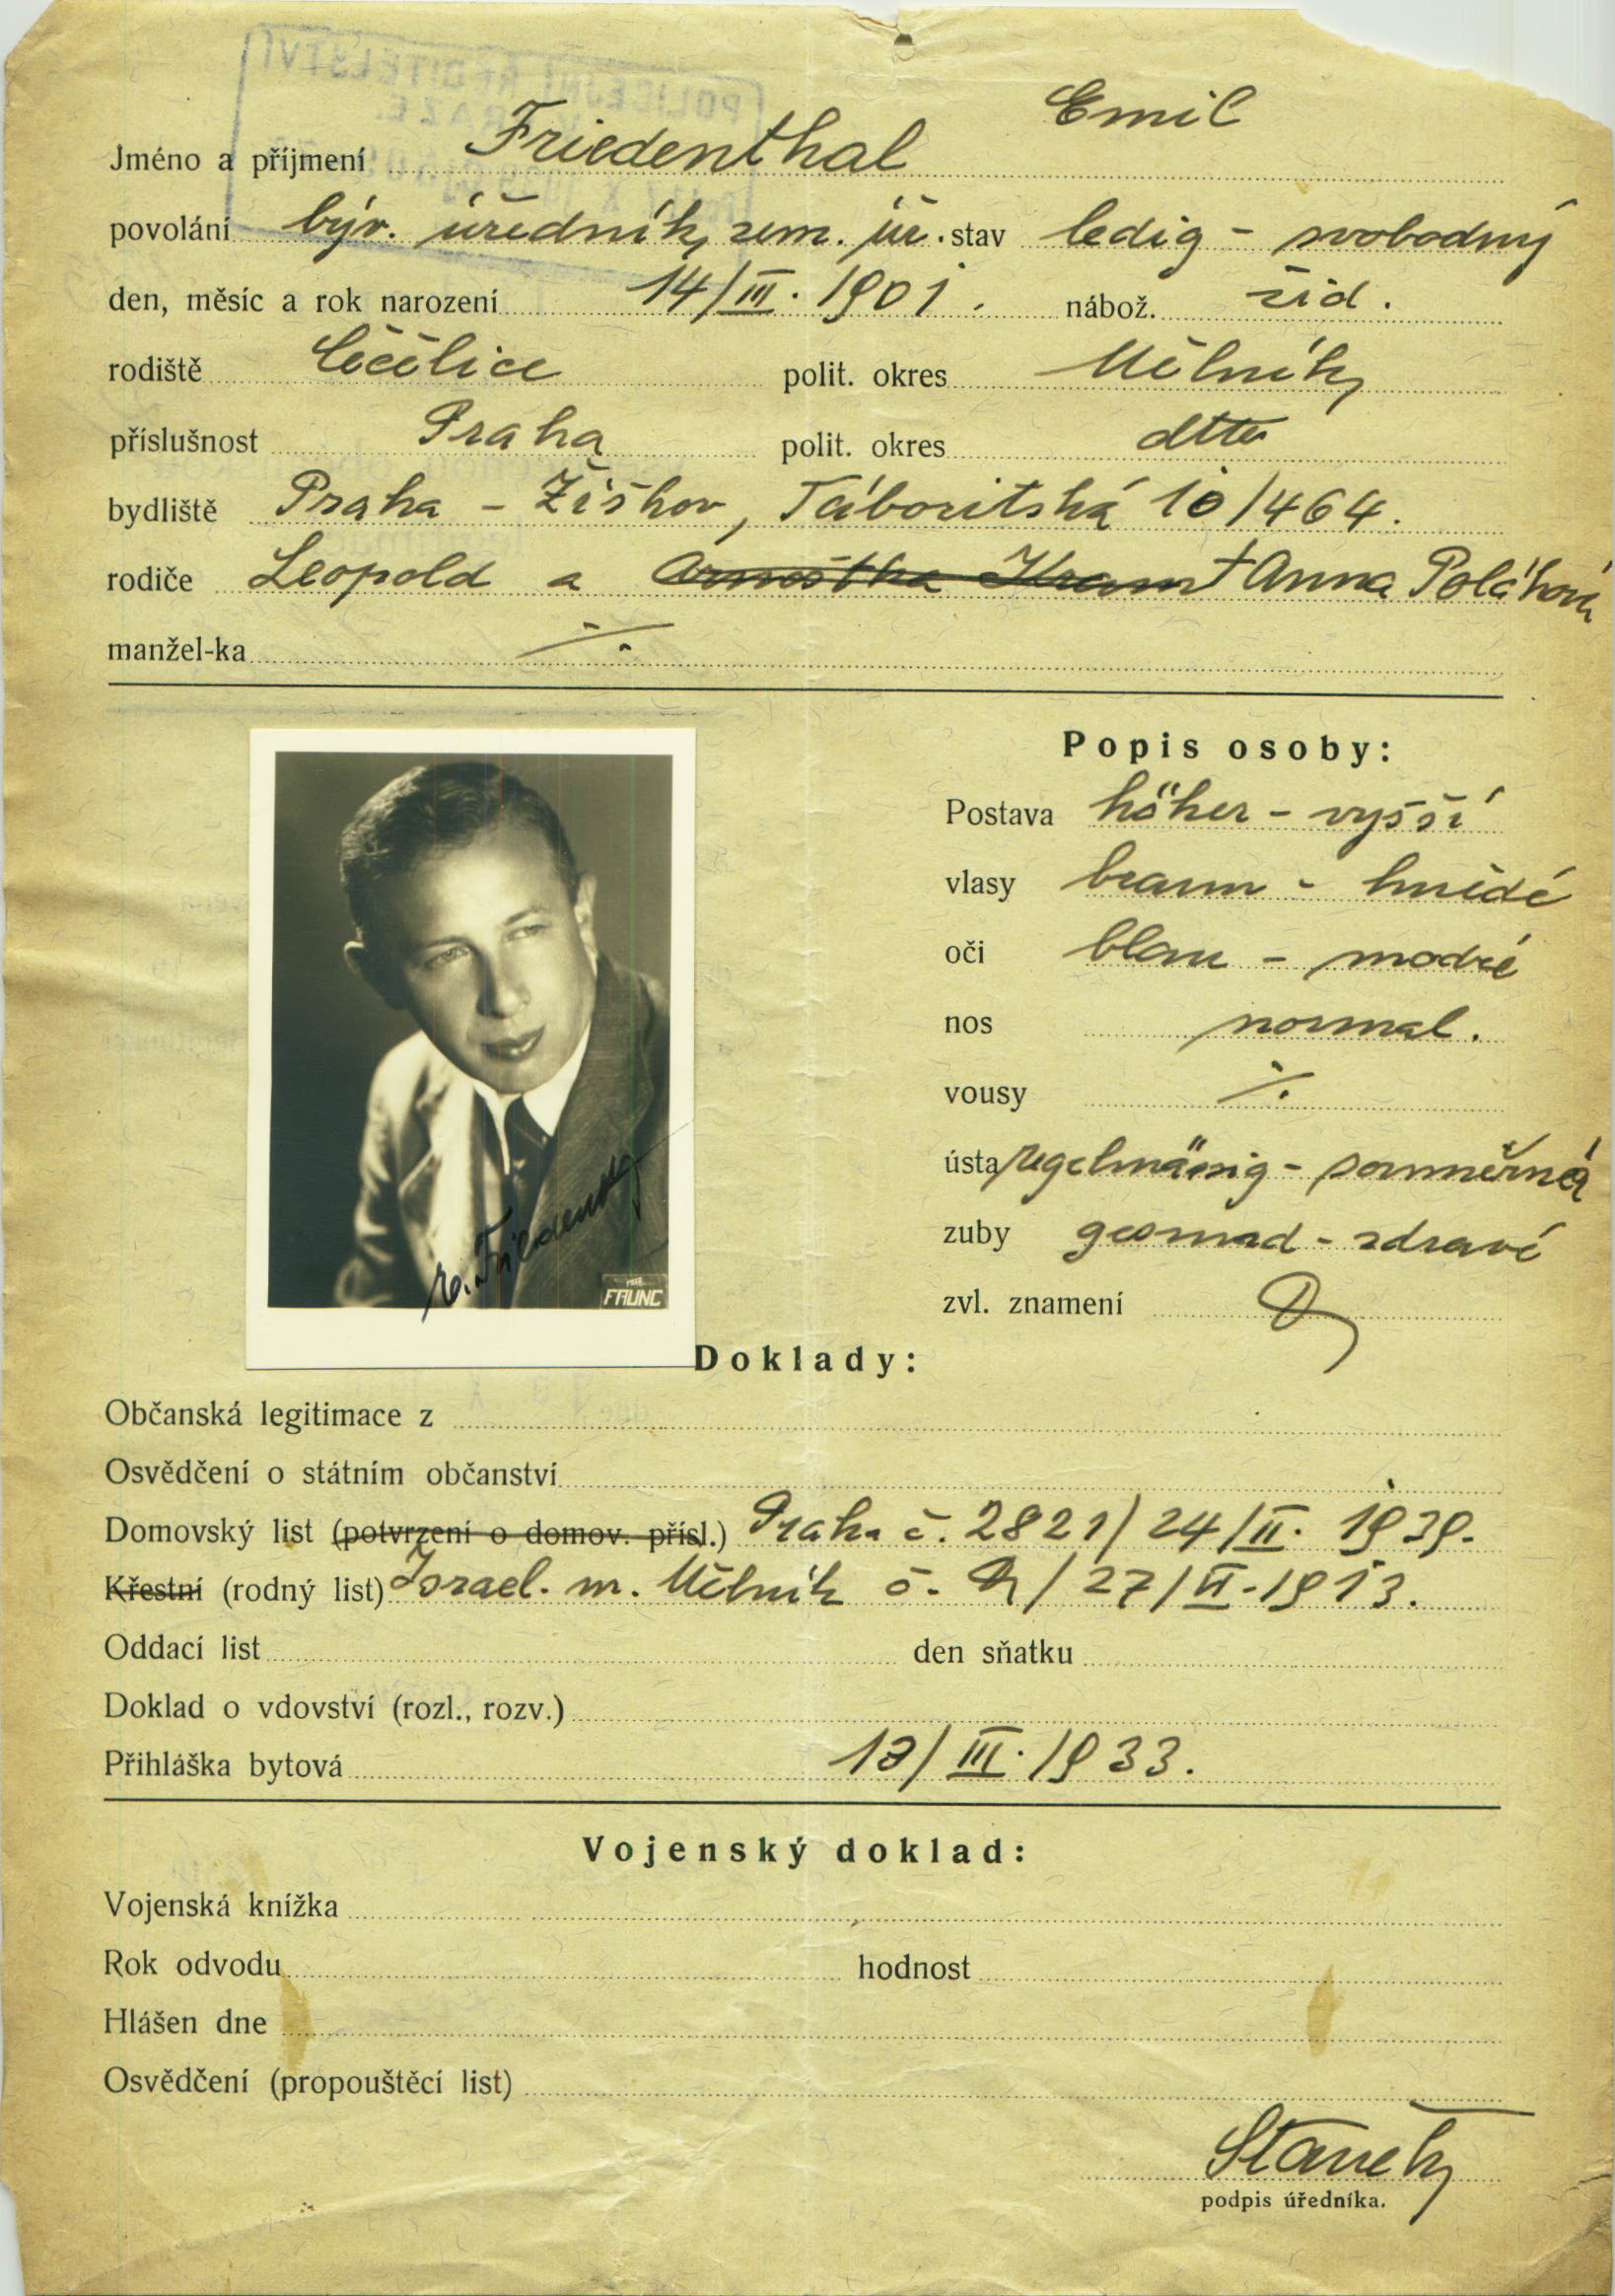 POLICEJNÍ ŘEDITELSTVÍ
Emil
Jméno a příjmení Friedenthal
povolání býv. úředník zem. úř. stav ledig - svobodný
den, měsíc a rok narození 14/III. 1901. nábož. žid.
rodiště Čečelice polit. okres Mělník
příslušnost Praha polit. okres dtto
bydliště Praha - Žižkov, Táboritská 10/464.
rodiče Leopold a Arnoštka † Anna Poláková
manžel-ka ·/.
Popis osoby:
Postava höher - vyšší
vlasy braun - hnědé
oči blau - modré
nos normal.
vousy ·/.
ústa regelmässig - souměrná
zuby gesund - zdravé
zvl. znamení
FAUNC
Doklady:
Občanská legitimace z
Osvědčení o státním občanství
Domovský list (potvrzení o domov. přísl.) Praha č. 2821/24/II. 1939.
Křestní (rodný list) Israel. m. Mělník č. /27/VI. 1913.
Oddací list den sňatku
Doklad o vdovství (rozl., rozv.)
Přihláška bytová /III. 1933.
Vojenský doklad:
Vojenská knížka
Rok odvodu hodnost
Hlášen dne
Osvědčení (propouštěcí list)
Staněk
podpis úředníka.